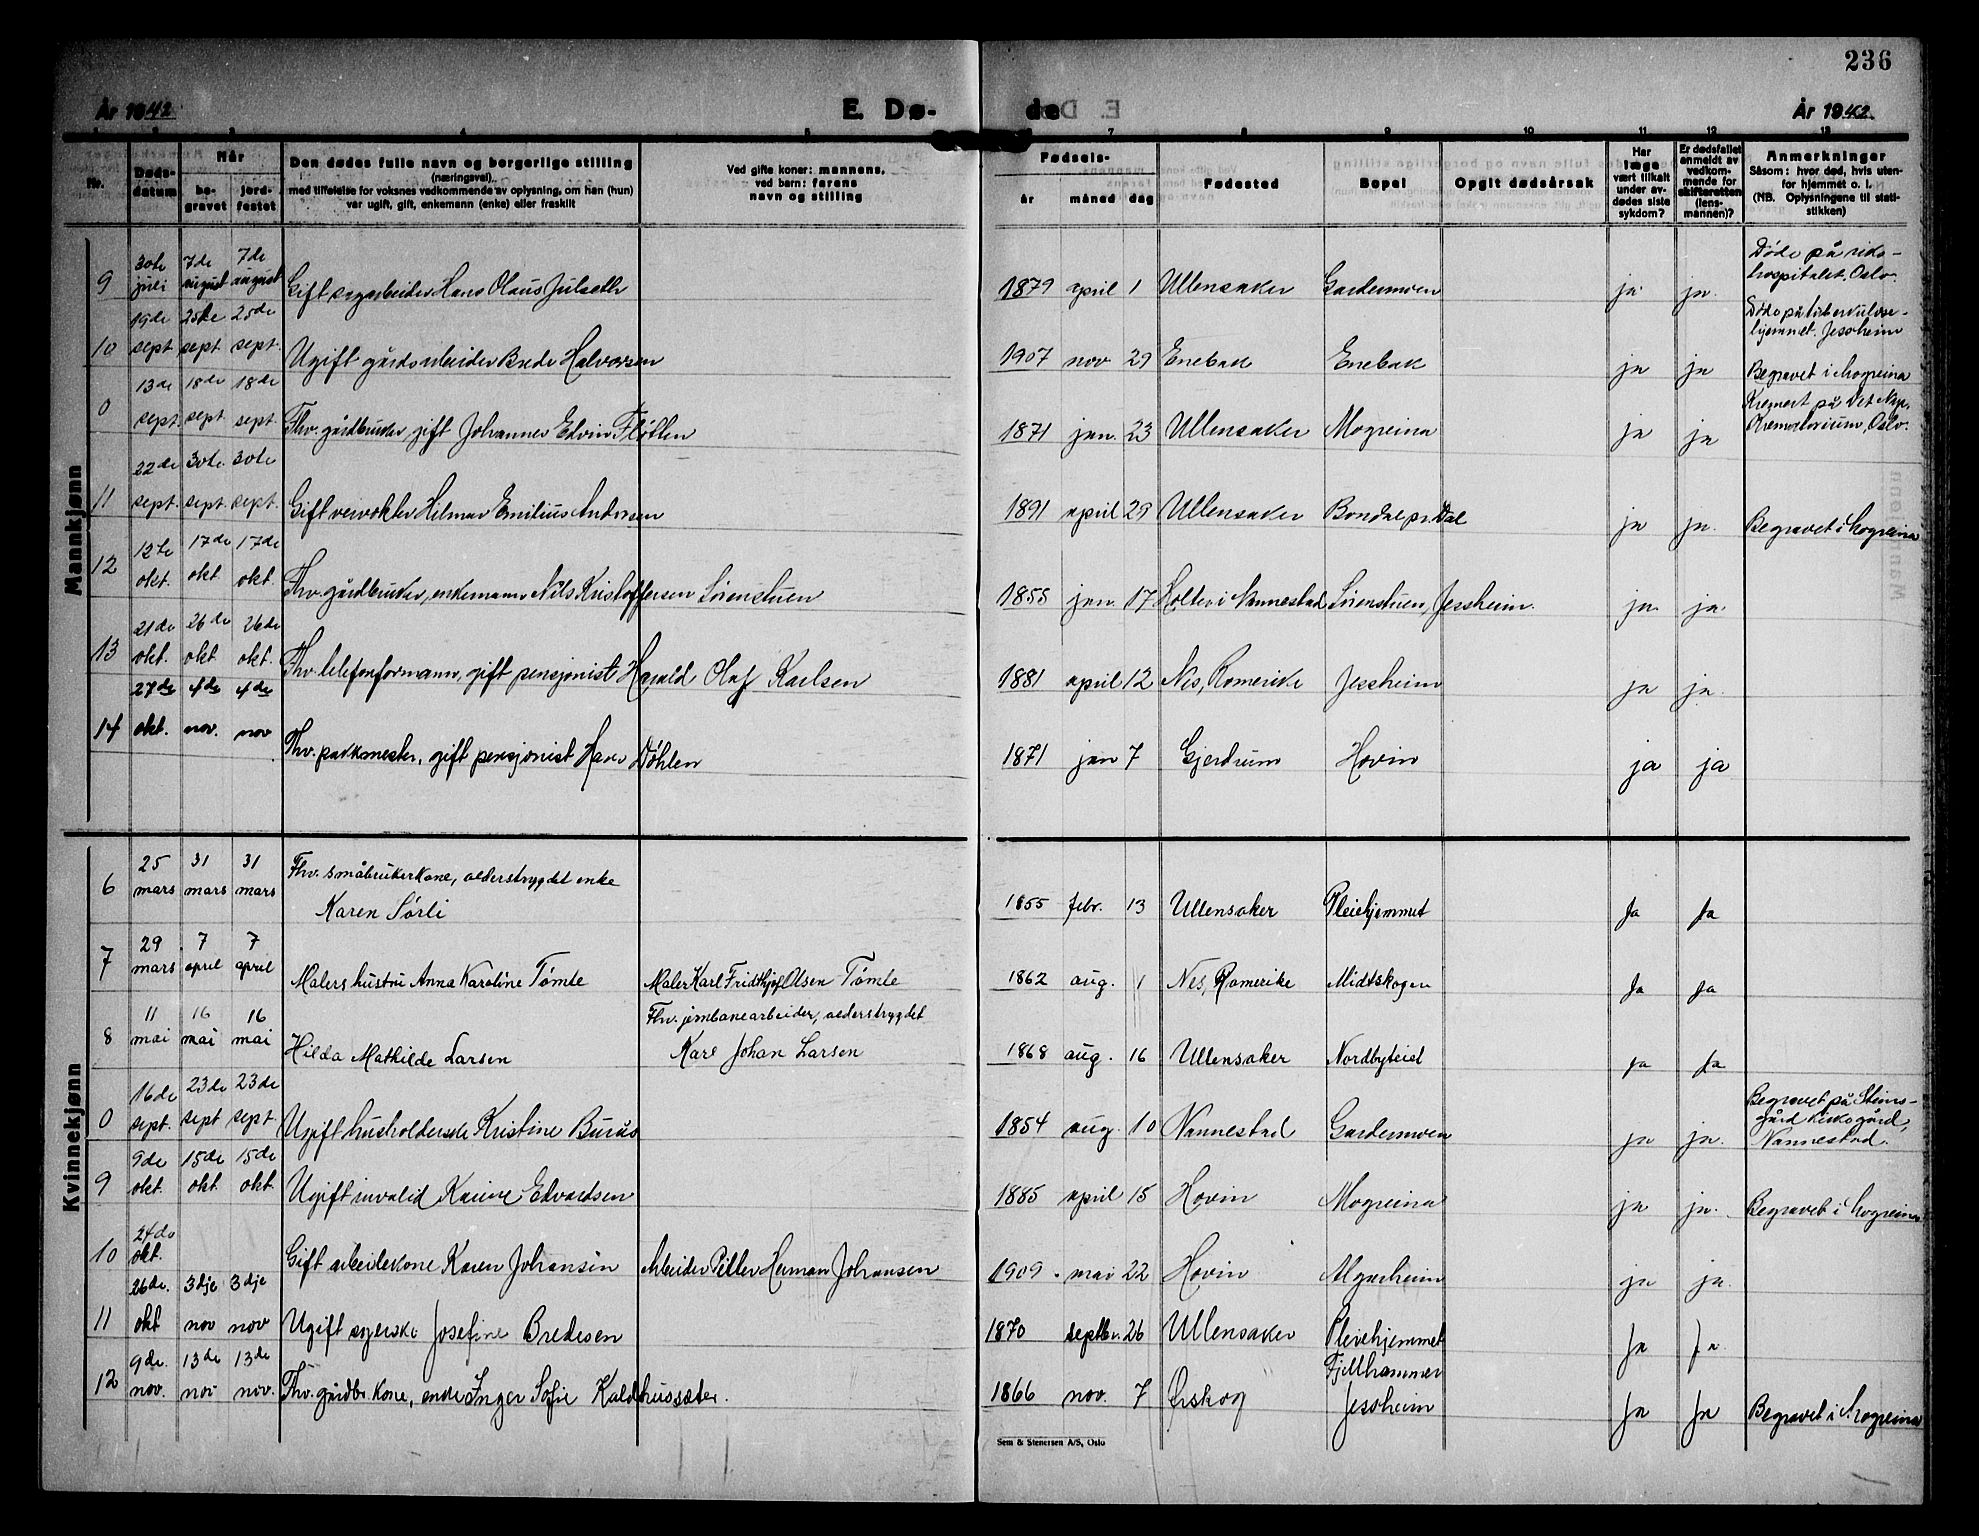 236
År 1942
E. Dø-
de
År 1942
1 2 3 4 5 7 8 9 10 11 12 13
Nr.
Døds-
datum
Når
be-
gravet
jord-
festet
Den dødes fulle navn og borgerlige stilling
(næringsvei),
med tilføielse for voksnes vedkommende av oplysning, om han (hun)
var ugift, gift, enkemann (enke) eller fraskilt
Ved gifte koner: mannens,
ved barn: farens
navn og stilling
Fødsels-
år måned dag
Fødested
Bopel
Opgit dødsårsak
Har
læge
vært tilkalt
under av-
dødes siste
sykdom?
Er dødsfallet
anmeldt av
vedkom-
mende for
skifteretten
(lens-
mannen)?
Anmerkninger
Såsom: hvor død, hvis uten-
for hjemmet o. l.
(NB. Oplysningene til stati-
stikken)
Mannkjønn
9 30te juli 7de august 7de august Gift sagarbeider Hans Olaus Julseth 1879 april 1 Ullensaker Gardermoen ja ja Døde på riks-
hospitalet. Oslo.
10 19de sept 25de sept 25de sept. Ugift gårdsarbeider Brede Halvorsen 1907 nov 29 Enebak Enebak ja ja Døde på tuberkulose-
hjemmet, Jessheim
Begravet i Mogreina
0 13de sept. 18de sept 18de sept. Fhv. gårdbruker gift Johannes Edvin Fløtten 1871 jan. 23 Ullensaker Mogreina ja ja Kremert på Det Nye
Krematorium, Oslo.
11 22de sept. 30te sept. 30te sept. Gift veivokter Hilmar Emilius Andersen 1891 april 29 Ullensaker Bondal pr. Dal ja ja. Begravet i Mogreina
12 12te okt. 17de okt 17de okt. Fhv. gårdbruker, enkemann Nils Kristoffersen Sörenstuen 1855 jan. 17 Holter i Nannestad Sörenstuen, Jessheim. ja ja
13 21de okt. 26de okt 26de okt. Fhv. telefonformann, gift pensjonist Harald Olaf Karlsen 1881 april 12 Nes, Romerike Jessheim ja ja.
14 27de okt. 4de nov. 4de nov Fhv. pakkmester, gift pensjonist Hans Døhlen 1871 jan 7 Gjerdrum Hovin ja ja
Kvinnekjønn
6 25 mars 31 mars 31 mars Fhv. småbrukerkone, alderstrygdet enke
Karen Sørli 1855 febr. 13 Ullensaker Pleiehjemmet ja ja
7 29 mars 7 april 7 april Malers hustru Anna Karoline Tømte Maler Karl Fridthjof Olsen Tømte 1862 aug. 1 Nes, Romerike Midtskogen ja ja
8 11 mai 16 mai 16 mai Hilda Mathilde Larsen Fhv. jernbanearbeider, alderstrygdet
Karl Johan Larsen 1868 aug. 16 Ullensaker Nordbyteiet ja ja
0 16de sept. 23de sept 23de sept. Ugift husholderske Kristine Burås 1854 aug. 10 Nannestad Gardermoen ja ja. Begravet på Steins-
gård kirkegård,
Nannestad.
9 9de okt. 15de okt 15de okt. Ugift invalid Karine Edvardsen 1885 april 15 Hovin Mogreina ja ja. Begravet i Mogreina
10 24de okt. Gift arbeiderkone Karen Johansen Arbeider Petter Herman Johansen 1909 mai 22 Hovin Algarheim ja ja.
11 26de. okt 3dje nov 3dje nov Ugift syerske Josefine Bredesen 1870 septbr. 26 Ullensaker Pleiehjemmet ja ja.
12 9de. nov. 13de nov 13de nov. Fhv. gårdbr. kone, enke Inger Sofie Kaldhussæter. 1866 nov. 7 Ørskog Fjellhammer
Jessheim ja ja Begravet i Mogreina
Sem & Stenersen A/S, Oslo